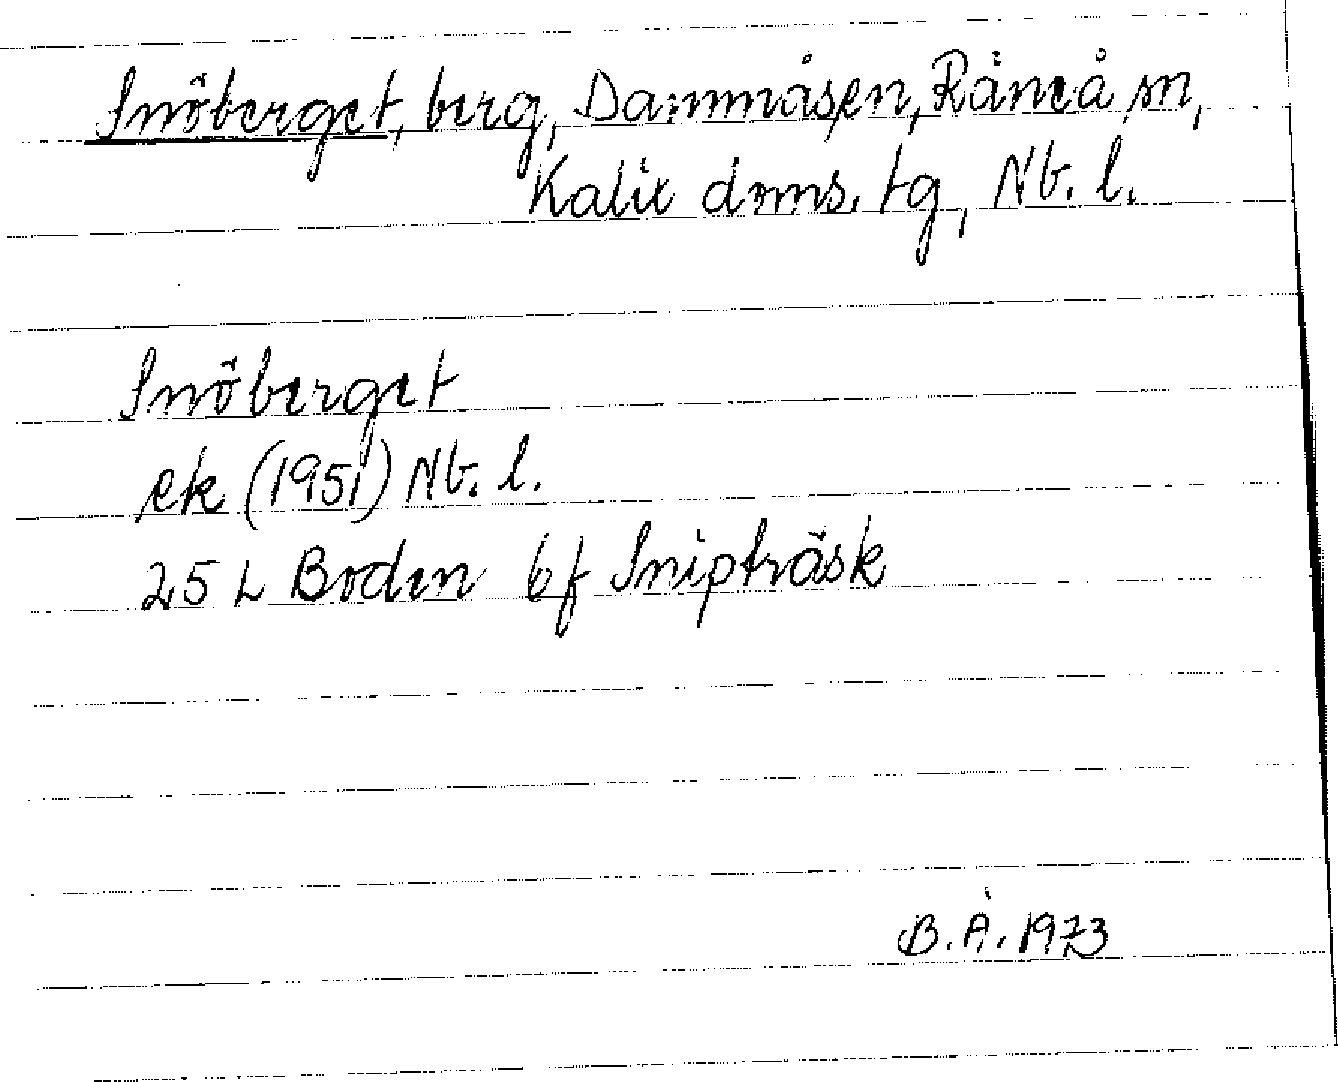 Snöberget, berg, Dammåsen, Råneå sn,
Kalix doms. tg, Nb. l.
Snöberget
ek (1951) Nb. l.
25 L Boden 6f Snipträsk
B. Å. 1973